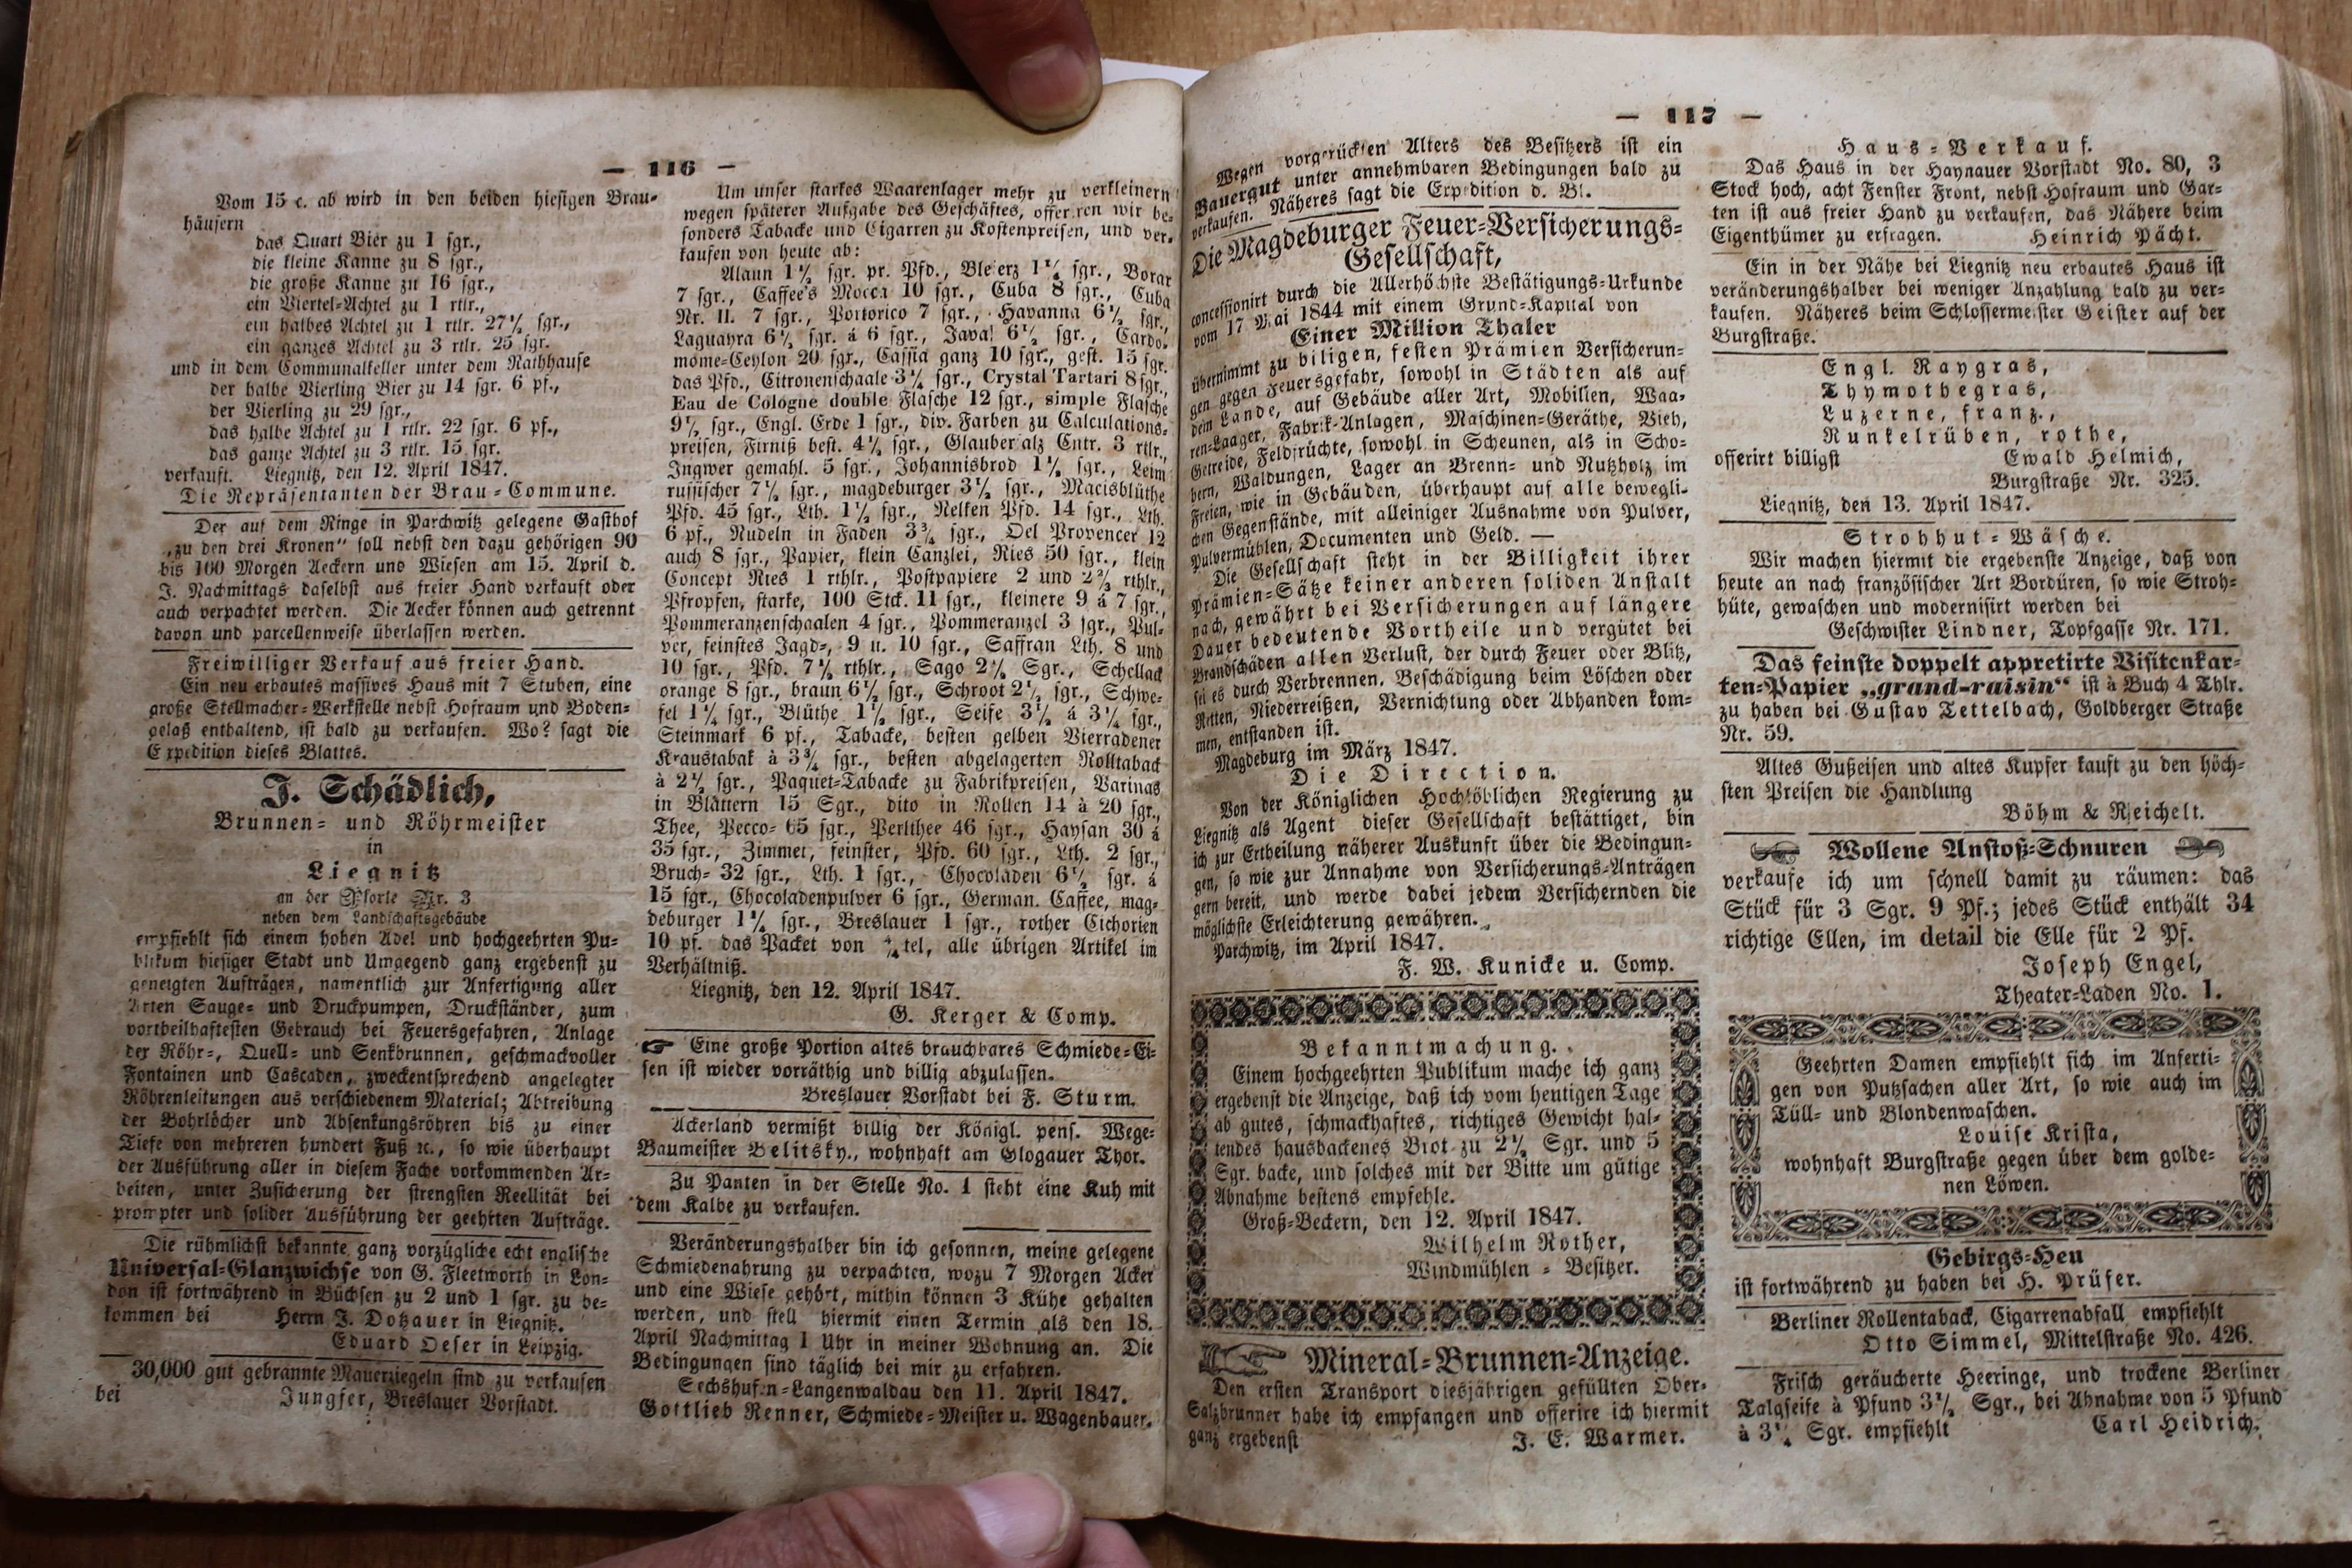 — 116 —
Vom 15 c. ab wird in den beiden hiesigen Brau-
häusern
das Quart Bier zu 1 sgr.,
die kleine Kanne zu 8 sgr.,
die große Kanne zu 16 sgr.,
ein Viertel-Achtel zu 1 rtlr.,
ein halbes Achtel zu 1 rtlr. 27½ sgr.,
ein ganzes Achtel zu 3 rtlr. 25 sgr.
und in dem Communalkeller unter dem Rathhause
der halbe Vierling Bier zu 14 sgr. 6 pf.,
der Vierling zu 29 sgr.,
das halbe Achtel zu 1 rtlr. 22 sgr. 6 pf.,
das ganze Achtel zu 3 rtlr. 15 sgr.
verkauft. Liegnitz, den 12. April 1847.
Die Repräsentanten der Brau-Commune.
Der auf dem Ringe in Parchwitz gelegene Gasthof
„zu den drei Kronen“ soll nebst den dazu gehörigen 90
bis 100 Morgen Aeckern und Wiesen am 15. April d.
J. Nachmittags daselbst aus freier Hand verkauft oder
auch verpachtet werden. Die Aecker können auch getrennt
davon und parcellenweise überlassen werden.
Freiwilliger Verkauf aus freier Hand.
Ein neu erbautes massives Haus mit 7 Stuben, eine
große Stellmacher-Werkstelle nebst Hofraum und Boden-
gelaß enthaltend, ist bald zu verkaufen. Wo? sagt die
Expedition dieses Blattes.
J. Schädlich,
Brunnen- und Röhrmeister
in
Liegnitz
an der Pforte Nr. 3
neben dem Landschaftsgebäude
empfiehlt sich einem hohen Adel und hochgeehrten Pu-
blikum hiesiger Stadt und Umgegend ganz ergebenst zu
geneigten Aufträgen, namentlich zur Anfertigung aller
Arten Sauge- und Druckpumpen, Druckständer, zum
vortheilhaftesten Gebrauch bei Feuersgefahren, Anlage
der Röhr-, Quell- und Senkbrunnen, geschmackvoller
Fontainen und Cascaden, zweckentsprechend angelegter
Röhrenleitungen aus verschiedenem Material; Abtreibung
der Bohrlöcher und Absenkungsröhren bis zu einer
Tiefe von mehreren hundert Fuß ꝛc., so wie überhaupt
der Ausführung aller in diesem Fache vorkommenden Ar-
beiten, unter Zusicherung der strengsten Reellität bei
prompter und solider Ausführung der geehrten Aufträge.
Die rühmlichst bekannte ganz vorzügliche echt englische
Universal-Glanzwichse von G. Fleetworth in Lon-
don ist fortwährend in Büchsen zu 2 und 1 sgr. zu be-
kommen bei Herrn J. Dotzauer in Liegnitz.
Eduard Oeser in Leipzig.
30,000 gut gebrannte Mauerziegeln sind zu verkaufen
bei Jungfer, Breslauer Vorstadt.
Um unser starkes Waarenlager mehr zu verkleinern
wegen späterer Aufgabe des Geschäftes, offeriren wir be-
sonders Tabacke und Cigarren zu Kostenpreisen, und ver-
kaufen von heute ab:
Alaun 1½ sgr. pr. Pfd., Bleierz 1½ sgr., Borax
7 sgr., Caffee's Mocca 10 sgr., Cuba 8 sgr., Cuba
Nr. II. 7 sgr., Portorico 7 sgr., Havanna 6½ sgr.,
Laguayra 6½ sgr. á 6 sgr., Java! 6½ sgr., Cardo-
mome-Ceylon 20 sgr., Cassia ganz 10 sgr., gest. 15 sgr.
das Pfd., Citronenschaale 3¼ sgr., Crystal Tartari 8 sgr.,
Eau de Cologne double Flasche 12 sgr., simple Flasche
9½ sgr., Engl. Erde 1 sgr., div. Farben zu Calculations-
preisen, Firniß best. 4½ sgr., Glaubersalz Cntr. 3 rtlr.,
Ingwer gemahl. 5 sgr., Johannisbrod 1½ sgr., Leim
russischer 7½ sgr., magdeburger 3½ sgr., Macisblüthe
Pfd. 45 sgr., Lth. 1½ sgr., Nelken Pfd. 14 sgr., Lth.
6 pf., Nudeln in Faden 3¾ sgr., Oel Provencer 12
auch 8 sgr., Papier, klein Canzlei, Ries 50 sgr., klein
Concept Ries 1 rthlr., Postpapiere 2 und 2⅔ rthlr.,
Pfropfen, starke, 100 Stck. 11 sgr., kleinere 9 á 7 sgr.,
Pommeranzenschaalen 4 sgr., Pommeranzel 3 sgr., Pul-
ver, feinstes Jagd-, 9 u. 10 sgr., Saffran Lth. 8 und
10 sgr., Pfd. 7½ rthlr., Sago 2½ Sgr., Schellack
orange 8 sgr., braun 6½ sgr., Schroot 2½ sgr., Schwe-
fel 1¼ sgr., Blüthe 1½ sgr., Seife 3½ á 3¼ sgr.,
Steinmark 6 pf., Tabacke, besten gelben Vierradener
Kraustabak à 3¾ sgr., besten abgelagerten Rolltaback
à 2½ sgr., Paquet-Tabacke zu Fabrikpreisen, Varinas
in Blättern 15 Sgr., dito in Rollen 14 à 20 sgr.,
Thee, Pecco- 65 sgr., Perlthee 46 sgr., Haysan 30 á
35 sgr., Zimmet, feinster, Pfd. 60 sgr., Lth. 2 sgr.,
Bruch- 32 sgr., Lth. 1 sgr., Chocoladen 6½ sgr. á
15 sgr., Chocoladenpulver 6 sgr., German. Caffee, mag-
deburger 1¼ sgr., Breslauer 1 sgr., rother Cichorien
10 pf. das Packet von ¼tel, alle übrigen Artikel im
Verhältniß.
Liegnitz, den 12. April 1847.
G. Kerger & Comp.
Eine große Portion altes brauchbares Schmiede-Ei-
sen ist wieder vorräthig und billig abzulassen.
Breslauer Vorstadt bei F. Sturm.
Ackerland vermißt billig der Königl. pens. Wege-
Baumeister Belitsky., wohnhaft am Glogauer Thor.
Zu Panten in der Stelle No. 1 steht eine Kuh mit
dem Kalbe zu verkaufen.
Veränderungshalber bin ich gesonnen, meine gelegene
Schmiedenahrung zu verpachten, wozu 7 Morgen Acker
und eine Wiese gehört, mithin können 3 Kühe gehalten
werden, und stell hiermit einen Termin als den 18.
April Nachmittag 1 Uhr in meiner Wohnung an. Die
Bedingungen sind täglich bei mir zu erfahren.
Sechshufen-Langenwaldau den 11. April 1847.
Gottlieb Renner, Schmiede-Meister u. Wagenbauer.
— 117 —
Wegen vorgerückten Alters des Besitzers ist ein
Bauergut unter annehmbaren Bedingungen bald zu
verkaufen. Näheres sagt die Expedition d. Bl.
Die Magdeburger Feuer-Versicherungs-
Gesellschaft,
concessionirt durch die Allerhöchste Bestätigungs-Urkunde
vom 17 Mai 1844 mit einem Grund-Kapital von
Einer Million Thaler
übernimmt zu biligen, festen Prämien Versicherun-
gen gegen Feuersgefahr, sowohl in Städten als auf
dem Lande, auf Gebäude aller Art, Mobilien, Waa-
ren-Laager, Fabrik-Anlagen, Maschinen-Geräthe, Vieh,
Getreide, Feldfrüchte, sowohl in Scheunen, als in Scho-
bern, Waldungen, Lager an Brenn- und Nutzholz im
Freien, wie in Gebäuden, überhaupt auf alle bewegli-
chen Gegenstände, mit alleiniger Ausnahme von Pulver,
Pulvermühlen, Documenten und Geld. —
Die Gesellschaft steht in der Billigkeit ihrer
Prämien-Sätze keiner anderen soliden Anstalt
nach, gewährt bei Versicherungen auf längere
Dauer bedeutende Vortheile und vergütet bei
Brandschäden allen Verlust, der durch Feuer oder Blitz,
sei es durch Verbrennen, Beschädigung beim Löschen oder
Retten, Niederreißen, Vernichtung oder Abhanden kom-
men, entstanden ist.
Magdeburg im März 1847.
Die Direction.
Von der Königlichen Hochlöblichen Regierung zu
Liegnitz als Agent dieser Gesellschaft bestättiget, bin
ich zur Ertheilung näherer Auskunft über die Bedingun-
gen, so wie zur Annahme von Versicherungs-Anträgen
gern bereit, und werde dabei jedem Versichernden die
möglichste Erleichterung gewähren.
Parchwitz, im April 1847.
F. W. Kunicke u. Comp.
Bekanntmachung.
Einem hochgeehrten Publikum mache ich ganz
ergebenst die Anzeige, daß ich vom heutigen Tage
ab gutes, schmackhaftes, richtiges Gewicht hal-
tendes hausbackenes Brot zu 2½ Sgr. und 5
Sgr. backe, und solches mit der Bitte um gütige
Abnahme bestens empfehle.
Groß-Beckern, den 12. April 1847.
Wilhelm Rother,
Windmühlen-Besitzer.
Mineral-Brunnen-Anzeige.
Den ersten Transport diesjährigen gefüllten Ober-
Salzbrunner habe ich empfangen und offerire ich hiermit
ganz ergebenst J. E. Warmer.
Haus-Verkauf.
Das Haus in der Haynauer Vorstadt No. 80, 3
Stock hoch, acht Fenster Front, nebst Hofraum und Gar-
ten ist aus freier Hand zu verkaufen, das Nähere beim
Eigenthümer zu erfragen. Heinrich Pächt.
Ein in der Nähe bei Liegnitz neu erbautes Haus ist
veränderungshalber bei weniger Anzahlung bald zu ver-
kaufen. Näheres beim Schlossermeister Geister auf der
Burgstraße.
Engl. Raygras,
Thymothegras,
Luzerne, franz.,
Runkelrüben, rothe,
offerirt billigst Ewald Helmich,
Burgstraße Nr. 325.
Liegnitz, den 13. April 1847.
Strohhut-Wäsche.
Wir machen hiermit die ergebenste Anzeige, daß von
heute an nach französischer Art Bordüren, so wie Stroh-
hüte, gewaschen und modernisirt werden bei
Geschwister Lindner, Topfgasse Nr. 171.
Das feinste doppelt appretirte Visitenkar-
ten-Papier „grand-raisin“ ist à Buch 4 Thlr.
zu haben bei Gustav Tettelbach, Goldberger Straße
Nr. 59.
Altes Gußeisen und altes Kupfer kauft zu den höch-
sten Preisen die Handlung
Böhm & Reichelt.
Wollene Anstoß-Schnuren
verkaufe ich um schnell damit zu räumen: das
Stück für 3 Sgr. 9 Pf.; jedes Stück enthält 34
richtige Ellen, im detail die Elle für 2 Pf.
Joseph Engel,
Theater-Laden No. 1.
Geehrten Damen empfiehlt sich im Anferti-
gen von Putzsachen aller Art, so wie auch im
Tüll- und Blondenwaschen.
Louise Krista,
wohnhaft Burgstraße gegen über dem golde-
nen Löwen.
Gebirgs-Heu
ist fortwährend zu haben bei H. Prüfer.
Berliner Rollentaback, Cigarrenabfall empfiehlt
Otto Simmel, Mittelstraße No. 426.
Frisch geräucherte Heeringe, und trockene Berliner
Talgseife à Pfund 3½ Sgr., bei Abnahme von 5 Pfund
à 3¼ Sgr. empfiehlt Carl Heidrich.